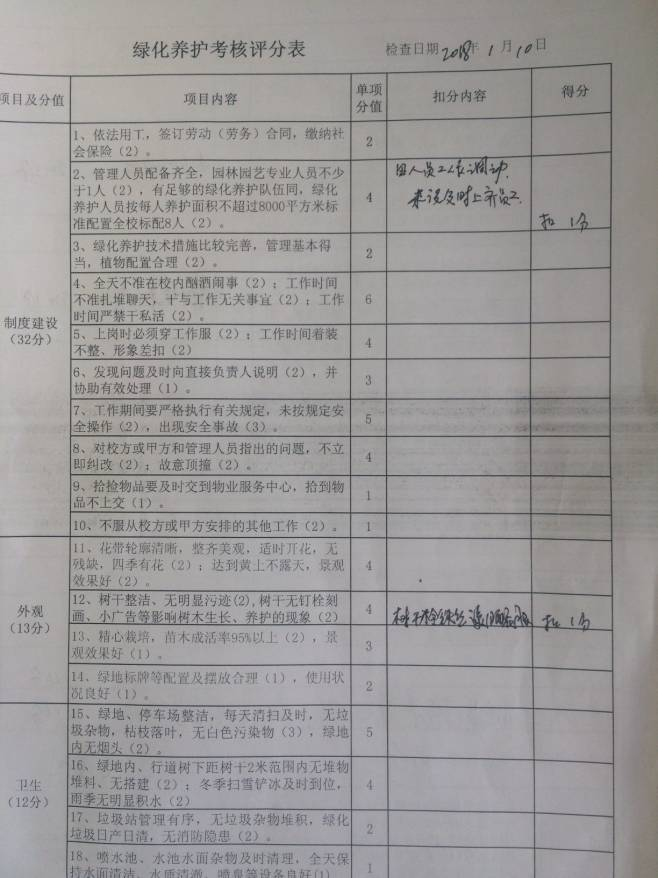 绿化养护考核评分表
检查日期2018年1月10日
项目及分值 项目内容 单项分值 扣分内容 得分
制度建设
（32分）
1、依法用工，签订劳动（劳务）合同，缴纳社
会保险（2）。
2
2、管理人员配备齐全，园林园艺专业人员不少
于1人（2），有足够的绿化养护队伍同，绿化
养护人员按每人养护面积不超过8000平方米标
准配置全校标配8人（2）。
4
因人员工作调动
扣1分
3、绿化养护技术措施比较完善，管理基本得
当，植物配置合理（2）。
2
4、全天不准在校内酗酒闹事（2）；工作时间
不准扎堆聊天，干与工作无关事宜（2）；工作
时间严禁干私活（2）。
6
5、上岗时必须穿工作服（2）；工作时间着装
不整、形象差扣（2）
4
6、发现问题及时向直接负责人说明（2），并
协助有效处理（1）。
3
7、工作期间要严格执行有关规定，未按规定安
全操作（2），出现安全事故（3）。
5
8、对校方或甲方和管理人员指出的问题，不立
即纠改（2）；故意顶撞（2）。
4
9、拾捡物品要及时交到物业服务中心，拾到物
品不上交（1）。
1
10、不服从校方或甲方安排的其他工作（2）。
1
外观
（13分）
11、花带轮廓清晰，整齐美观，适时开花，无
残缺，四季有花（2）；达到黄土不露天，景观
效果好（2）。
4
12、树干整洁、无明显污迹(2),树干无钉栓刻
画、小广告等影响树木生长、养护的现象（2）
4
扣1分
13、精心栽培，苗木成活率95%以上（2），景
观效果好（1）。
3
14、绿地标牌等配置及摆放合理（1），使用状
况良好（1）。
2
卫生
（12分）
15、绿地、停车场整洁，每天清扫及时，无垃
圾杂物，枯枝落叶，无白色污染物（3），绿地
内无烟头（2）。
5
16、绿地内、行道树下距树干2米范围内无堆物
堆料、无搭建（2）；冬季扫雪铲冰及时到位，
雨季无明显积水（2）
4
17、垃圾站管理有序，无垃圾杂物堆积，绿化
垃圾日产日清，无消防隐患（2）。
2
18、喷水池、水池水面杂物及时清理，全天保
持水面清洁、水质清澈，喷泉等设备良好(1)
1